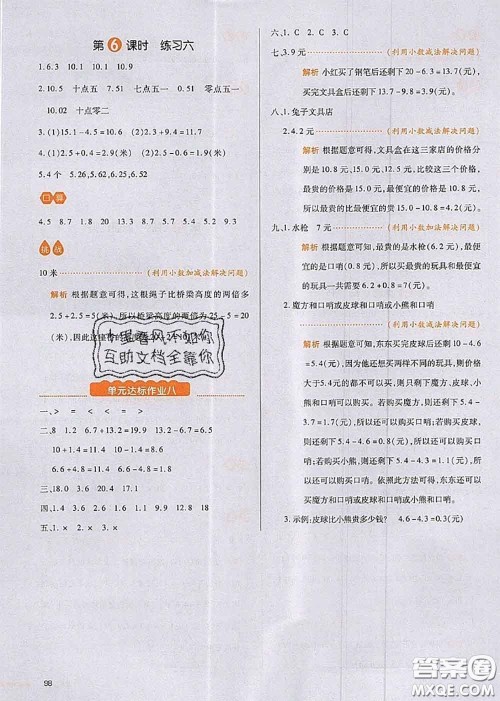 第6课时 练习六
1. 6.3 10.1 10.1 10.9
2. 10.5 十点五 7.51 七点五一 0.51 零点五一
10.02 十点零二
3. (1)15.1-4.5=10.6 (2)13.2-4=9.2
4. (1)2.5+0.4=2.9(米) (2)2.9+4.1=7(米)
5. 4个 5.26,5.62,6.25,6.52
口算
4.5 8.7 1.8 20 13.3 5.7 9.3 0.3 5.9
挑战
10米 (利用小数加减法解决问题)
解析 根据题意可得,这根绳子比桥梁高度的两倍多
2.5+2.5=5(米),所以桥梁高度的两倍为25-5=20
(米),因
十里春风不如你
互助文档全靠你
单元达标作业八
一、> = < < = >
二、8 1.2 6.7+13.2=19.9 11.2-4.6=6.6
10+1.4=11.4 3.6-0.6=3
6.4+4.8=11.2 11.6-6.8=4.8
三、18.0 4.33 20.6 17.4
四、10.4 1.4 13.1 1.4 9.1 12.8 18
五、1.× 2.× 3.× 4.×
六、1.C 2.C 3.C
七、3.9元 (利用小数减法解决问题)
解析 小红买了钢笔后还剩下20-6.3=13.7(元),
买完文具盒后还剩下13.7-9.8=3.9(元)。
八、1.兔子文具店
2.4.2元 (利用小数减法解决问题)
解析 根据题意可得,文具盒在这三家店的价格
分别是10.8元,15.0元,12.8元,比较这三个价
格,最贵的价格是15.0元,最便宜的价格是10.8
元,所以最贵的比最便宜的贵15.0-10.8=4.2
(元)。
九、1.水枪 7元 (利用小数加法解决问题)
解析 根据题意可知,最贵的是水枪,价格是6.2
元,最便宜的是口哨,价格是0.8元,最贵的玩具
和最便宜的玩具一共需要6.2+0.8=7(元)。
2.魔方和口哨或皮球和口哨或小熊和口哨
(利用小数减法解决问题)
解析 根据题意可得,东东买完玩具车后还剩下
10-4.6=5.4(元),因为他还想买两样不同的玩具,则价格
大于5.4元的不可以购买,因此魔方、皮球、小
熊和口哨可以购买。若东东购买魔方,还剩下5.4
-3.7=1.7(元),还可以购买口哨;若购买皮球,
则还剩下5.4-4.6=0.8(元),还可以购买口
哨;若购买小熊,则还剩下5.4-4.3=1.1(元),
还可以购买口哨。根据以上方法可知,东东还可
以买魔方和口哨或皮球和口哨或小熊和口哨。
3.示例:皮球比小熊贵多少钱? 4.6-4.3=0.3(元)
98
答案圈
MXQE.COM